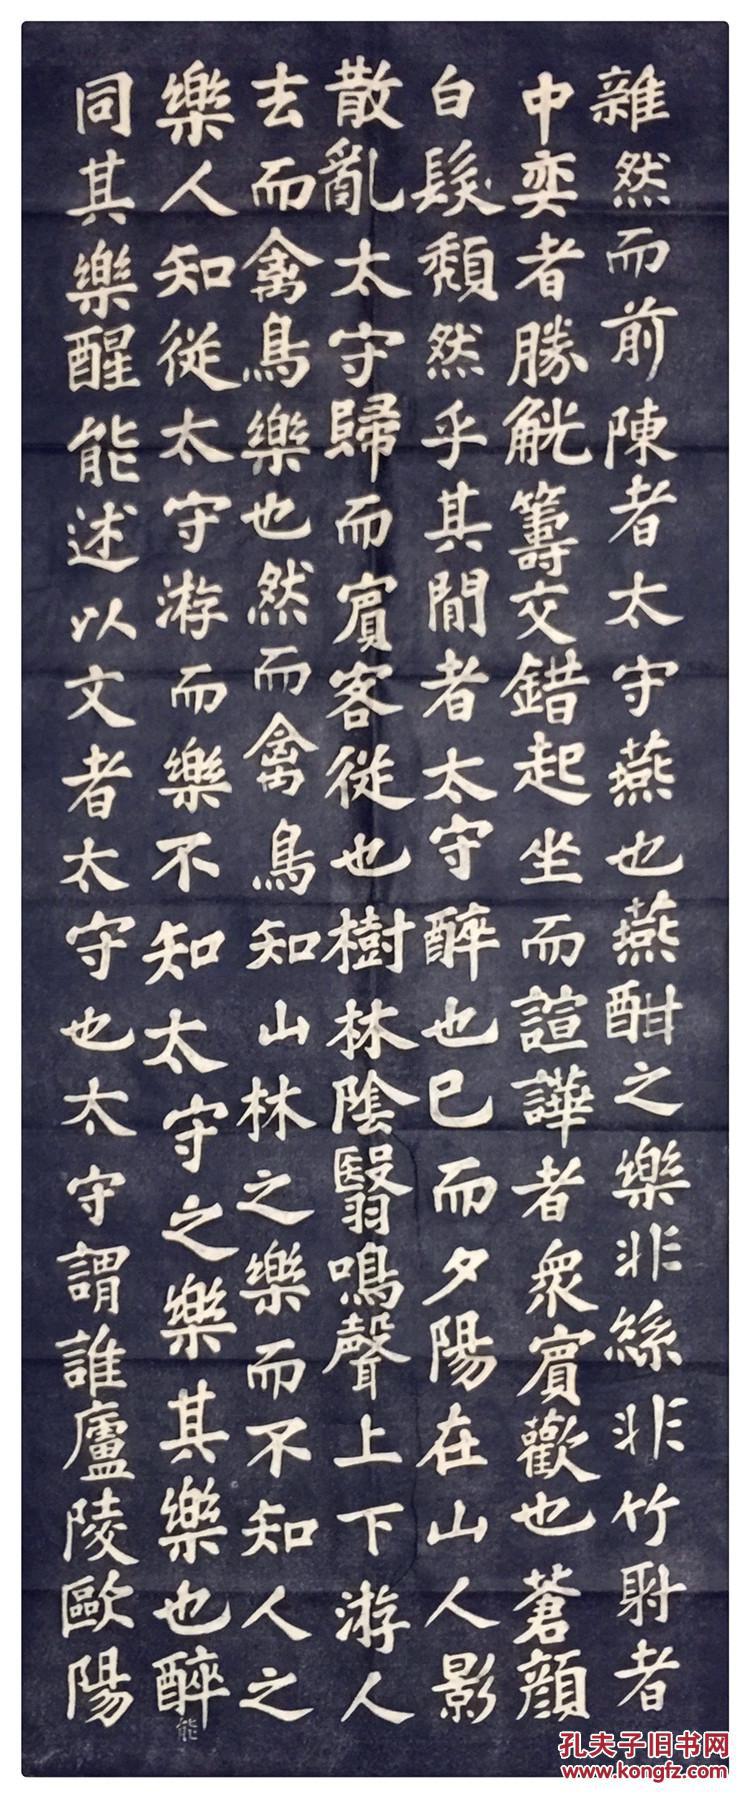 雜然而前陳者太守燕也燕酣之樂非絲非竹射者
中奕者勝觥籌交錯起坐而諠譁者衆賓歡也蒼顔
白髮頹然乎其閒者太守醉也已而夕陽在山人影
散亂太守歸而賓客從也樹林陰翳鳴聲上下游人
去而禽鳥樂也然而禽鳥知山林之樂而不知人之
樂人知從太守游而樂不知太守之樂其樂也醉
能
同其樂醒能述以文者太守也太守謂誰廬陵歐陽
孔夫子旧书网
www.kongfz.com